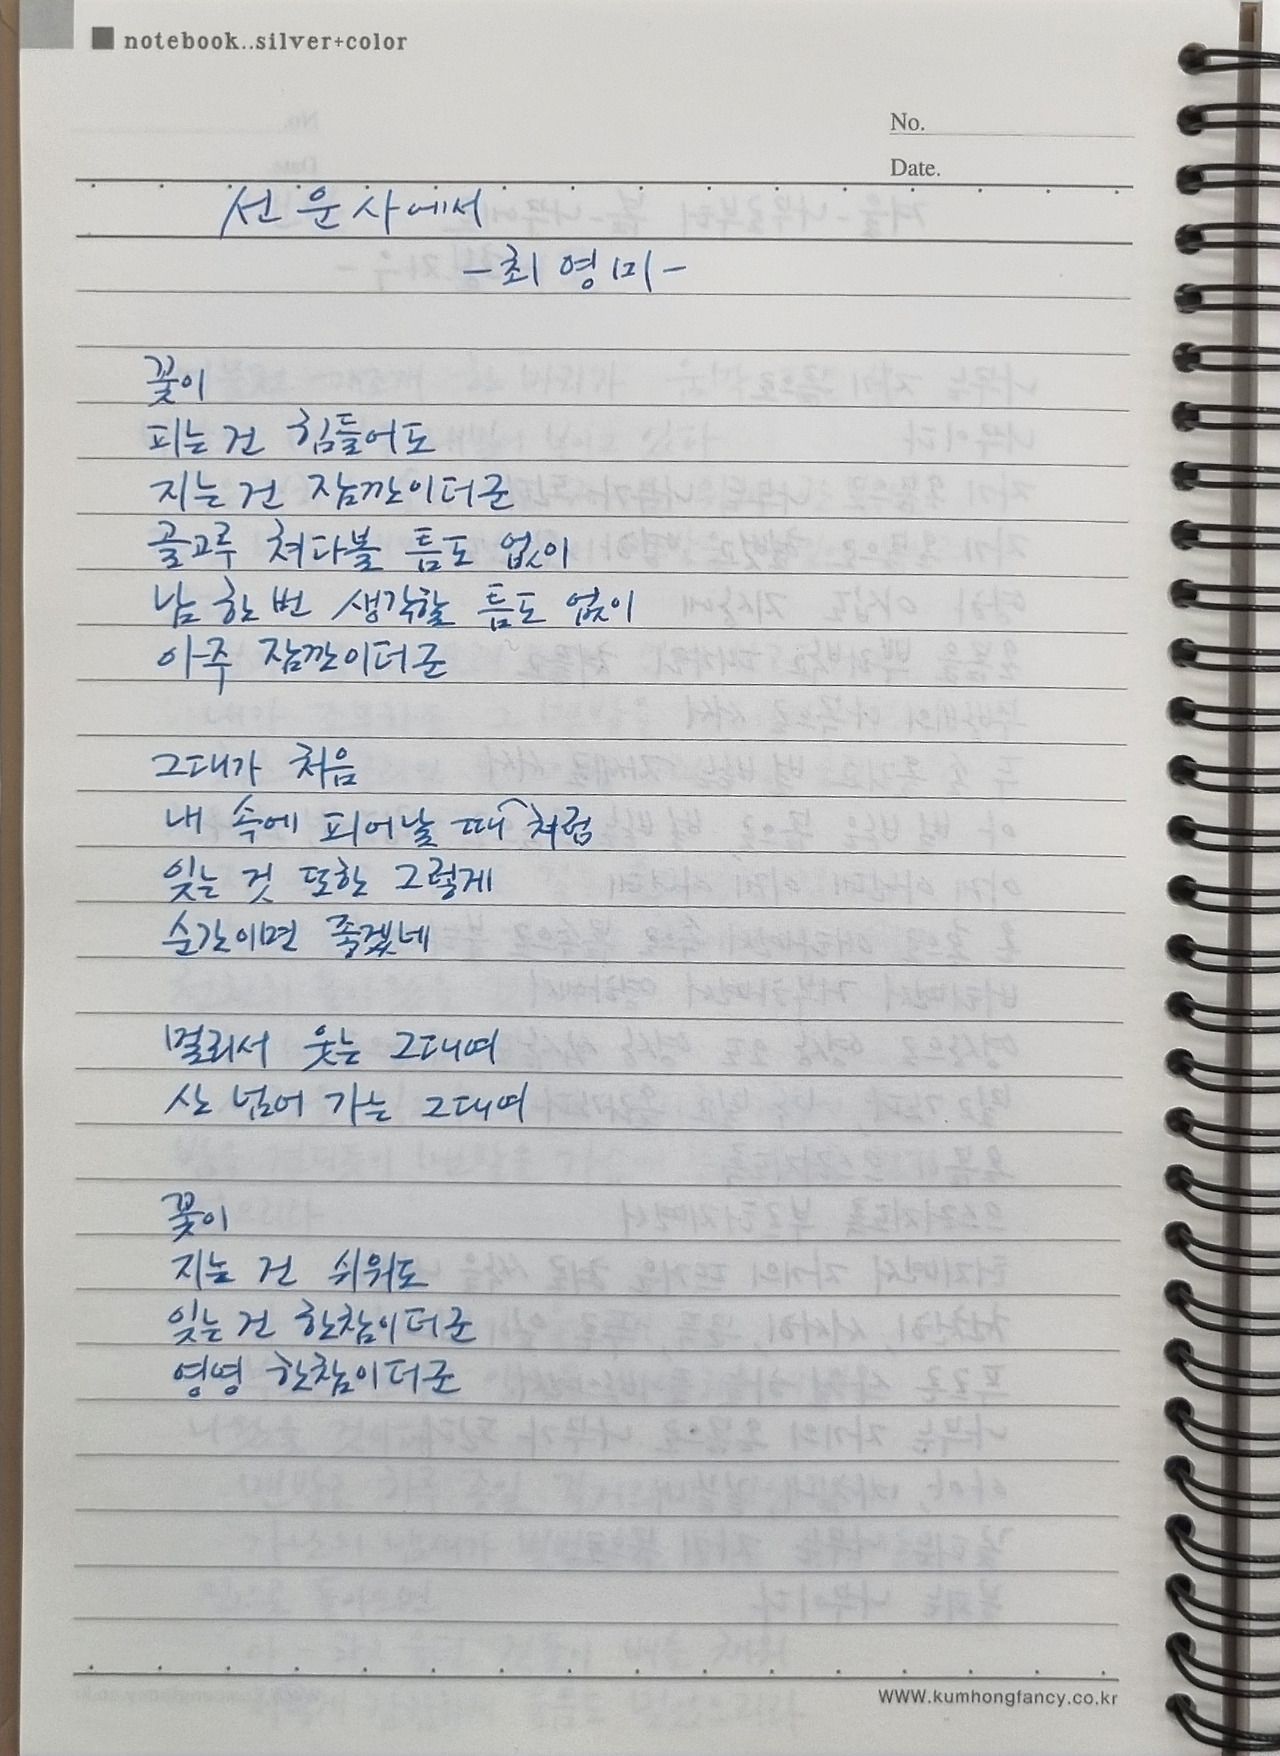 notebook..silver+color
No.
Date.
선운사에서
-최영미-
꽃이
피는 건 힘들어도
지는 건 잠깐이더군
골고루 쳐다볼 틈도 없이
님 한 번 생각할 틈도 없이
아주 잠깐이더군
그대가 처음
내 속에 피어날 때처럼
잊는 것 또한 그렇게
순간이면 좋겠네
멀리서 웃는 그대여
산 넘어 가는 그대여
꽃이
지는 건 쉬워도
잊는 건 한참이더군
영영 한참이더군
WWW.kumhongfancy.co.kr